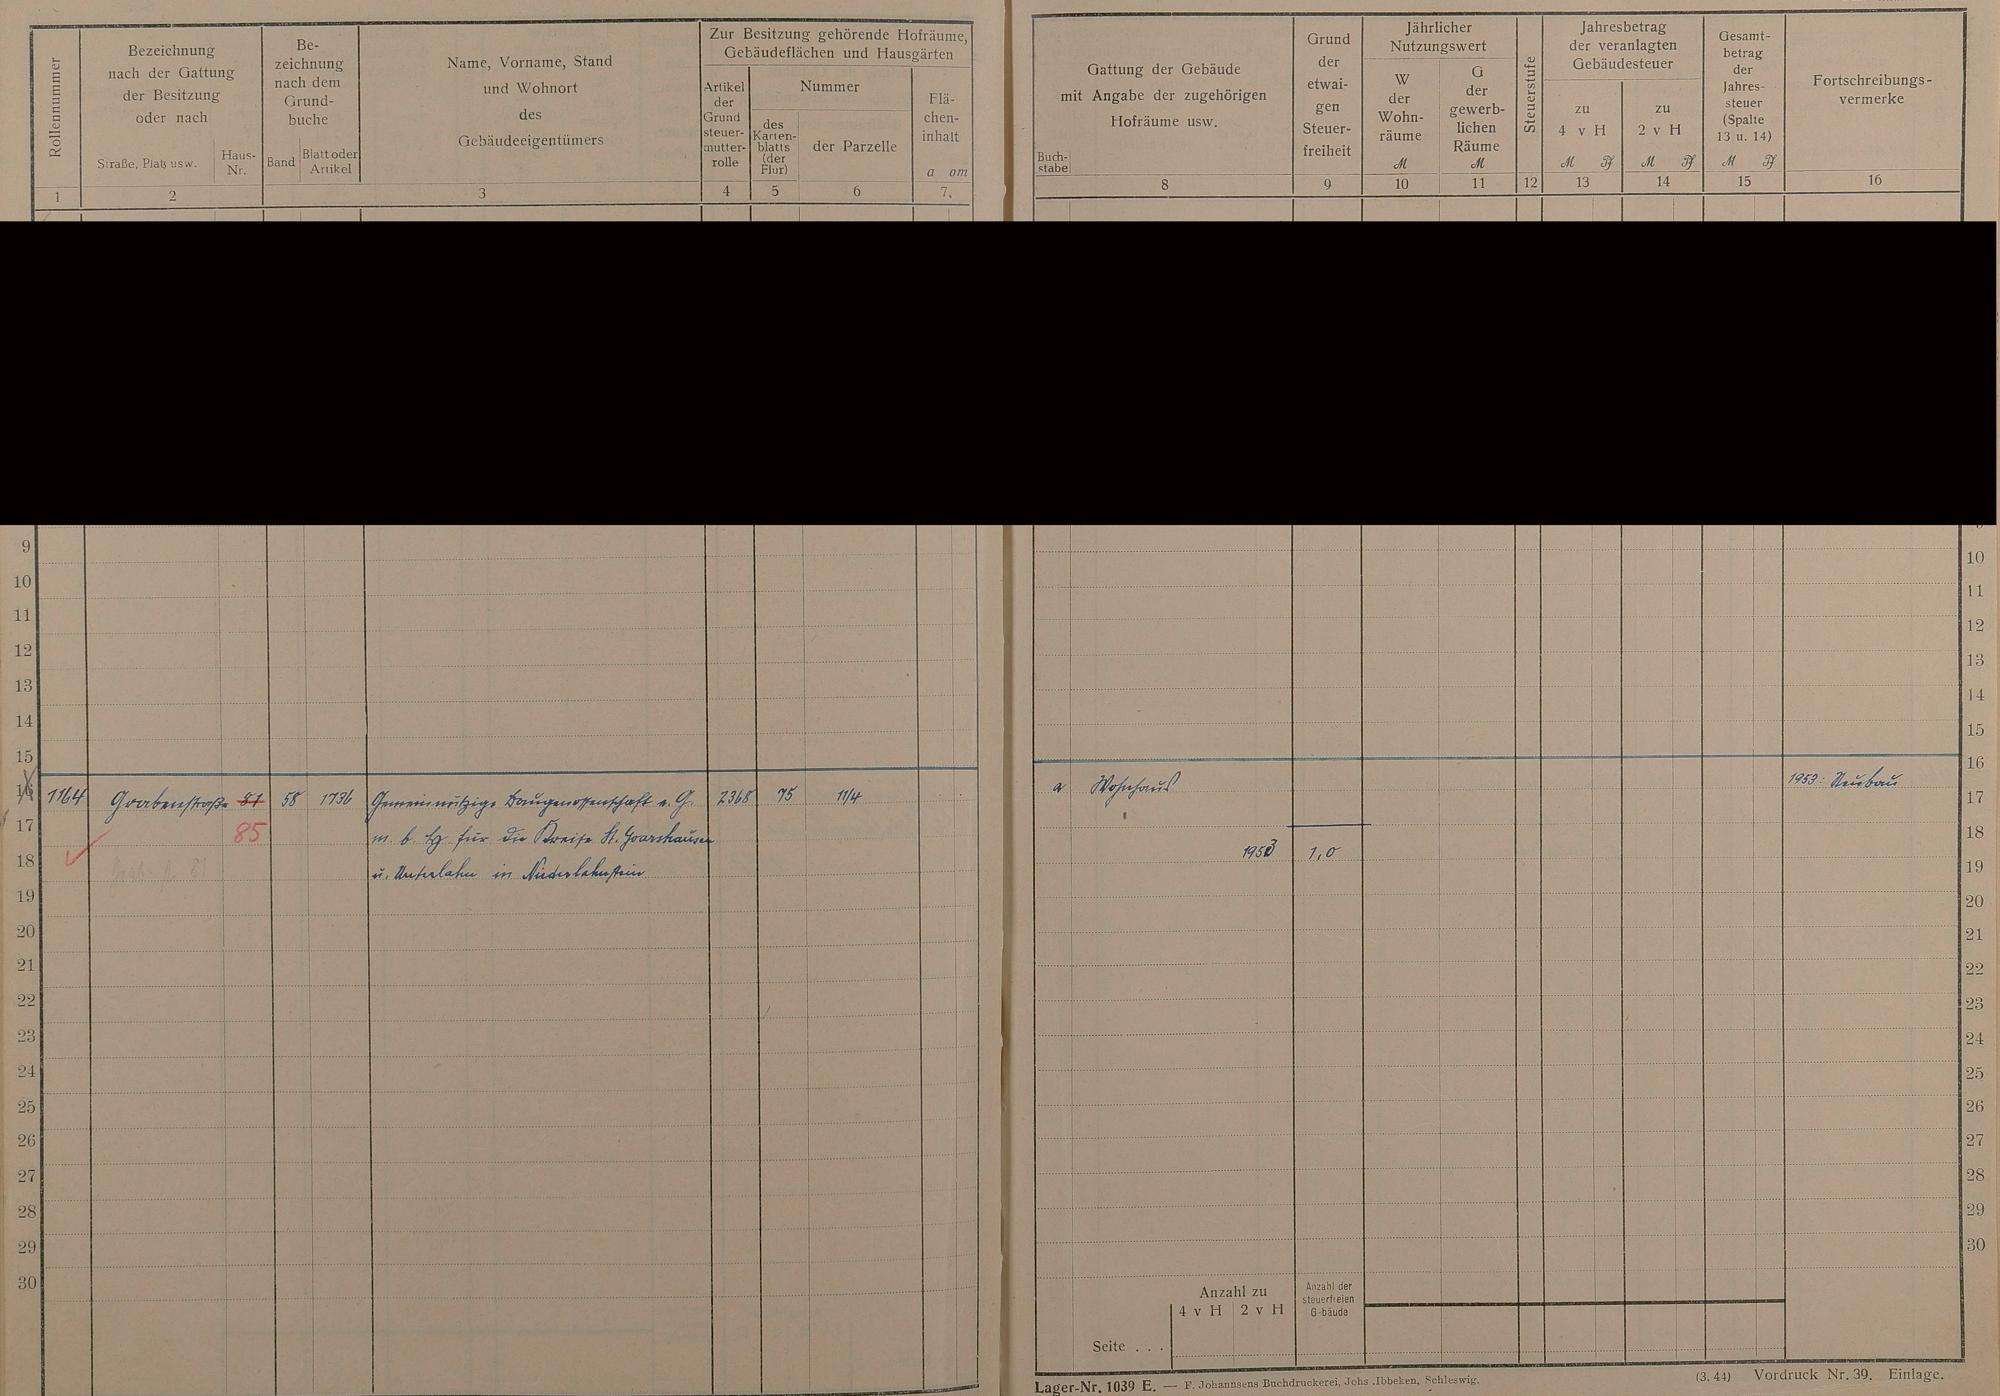 Rollennummer
Bezeichnung
nach der Gattung
der Besitzung
oder nach
Straße, Platz usw.
Haus-
Nr.
Be-
zeichnung
nach dem
Grund-
buche
Band
Blatt oder
Artikel
Name, Vorname, Stand
und Wohnort
des
Gebäudeeigentümers
Zur Besitzung gehörende Hofräume,
Gebäudeflächen und Hausgärten
Artikel
der
Grund
steuer-
mutter-
rolle
Nummer
des
Karten-
blatts
(der
Flur)
der Parzelle
Flä-
chen-
inhalt
a qm
1 2 3 4 5 6 7.
9
10
11
12
13
14
15
16
1164 Grabenstraße 81 58 1736 Gemeinnützige Baugenossenschaft e. G. 2368 75 11/4
17
85 m. b. H. für die Kreise St. Goarshausen
18
u. Unterlahn in Niederlahnstein
19
20
21
22
23
24
25
26
27
28
29
30
Buch-
stabe
Gattung der Gebäude
mit Angabe der zugehörigen
Hofräume usw.
Grund
der
etwai-
gen
Steuer-
freiheit
Jährlicher
Nutzungswert
W
der
Wohn-
räume
M
G
der
gewerb-
lichen
Räume
M
Steuerstufe
Jahresbetrag
der veranlagten
Gebäudesteuer
zu
4 v H
M Pf
zu
2 v H
M Pf
Gesamt-
betrag
der
Jahres-
steuer
(Spalte
13 u. 14)
M Pf
Fortschreibungs-
vermerke
8 9 10 11 12 13 14 15 16
10
11
12
13
14
15
16
a Wohnhaus 1953: Neubau
17
18
1953 1,0
19
20
21
22
23
24
25
26
27
28
29
30
Anzahl zu
4 v H 2 v H
Anzahl der
steuerfreien
Gebäude
Seite . . .
Lager-Nr. 1039 E. — F. Johannsens Buchdruckerei, Johs. Ibbeken, Schleswig.
(3. 44) Vordruck Nr. 39. Einlage.